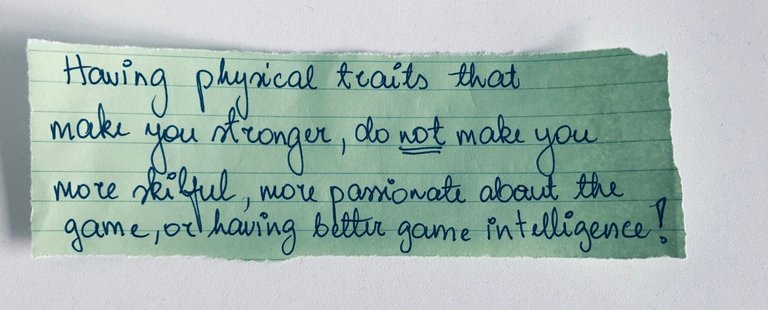 Having physical traits that
make you stronger, do not make you
more skilful, more passionate about the
game, or having better game intelligence!